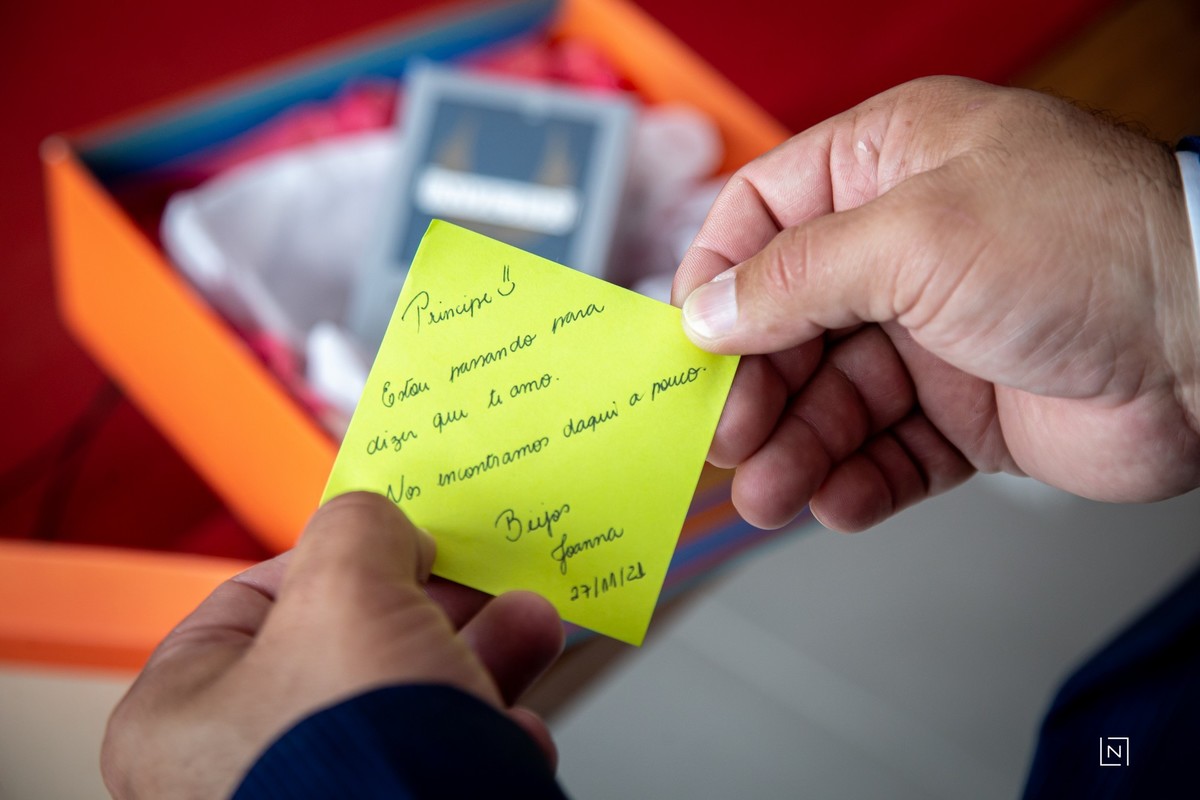 Príncipe =)
Estou passando para
dizer que te amo.
Nos encontramos daqui a pouco.
Beijos
Joanna
27/11/21
N